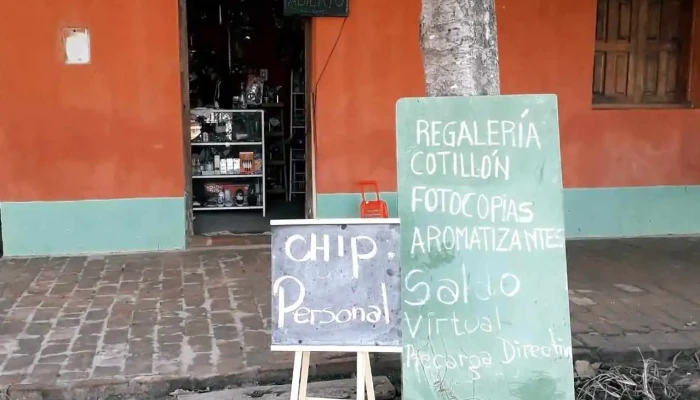 ABIERTO
CHIP.
Personal
REGALERÍA
COTILLÓN
FOTOCOPIAS
AROMATIZANTES
Saldo
Virtual
Recarga Directa